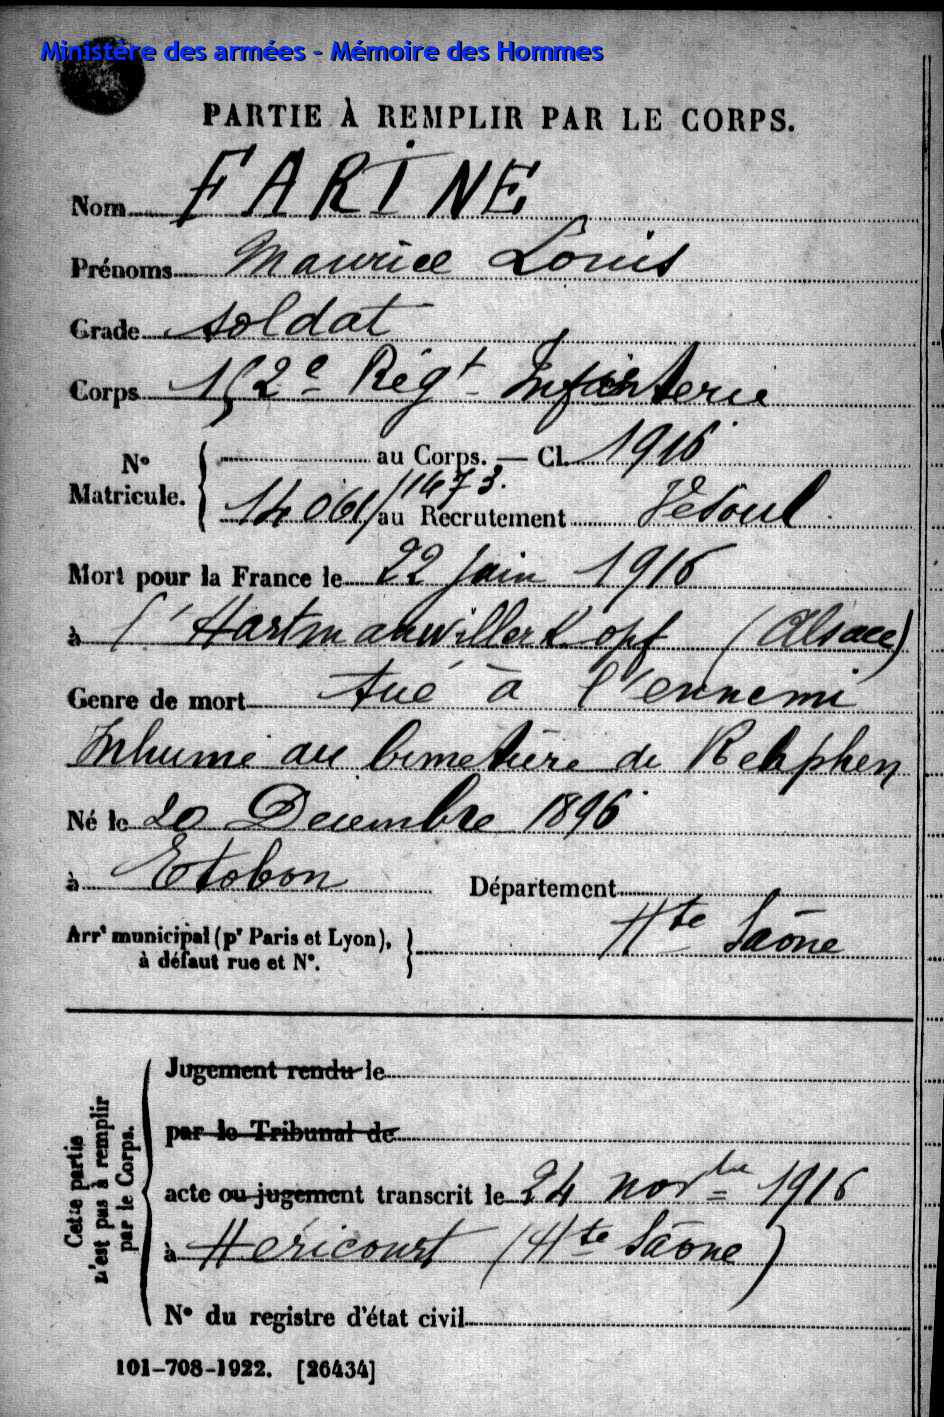 Ministère des armées - Mémoire des Hommes
PARTIE À REMPLIR PAR LE CORPS.
Nom FARINE
Prénoms Maurice Louis
Grade soldat
Corps 152e Régt Infanterie
N° Matricule. { au Corps. — Cl. 1916
14061/1473. au Recrutement Vesoul
Mort pour la France le 22 Juin 1916
à l'Hartmanwillerkopf (Alsace)
Genre de mort tué à l'ennemi
Inhumé au Cimetière de Rehphen
Né le 20 Décembre 1896
à Etobon Département
Hte Saône
Arrt municipal (pr Paris et Lyon), à défaut rue et N°.
Cette partie n'est pas à remplir par le Corps.
Jugement rendu le
par le Tribunal de
acte ou jugement transcrit le 24 novbre 1916
à Héricourt (Hte Saône)
N° du registre d'état civil
101-708-1922. [26434]